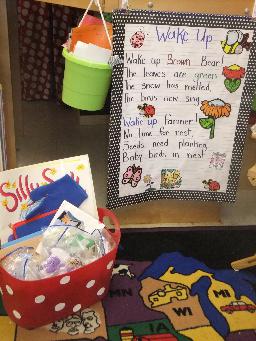 Wake Up
Wake up Brown Bear!
The leaves are green
The snow has melted,
The birds now sing.
Wake up farmer!
No time for rest,
Seeds need planting,
Baby birds in nest
Silly
MN
WI
MI
IA